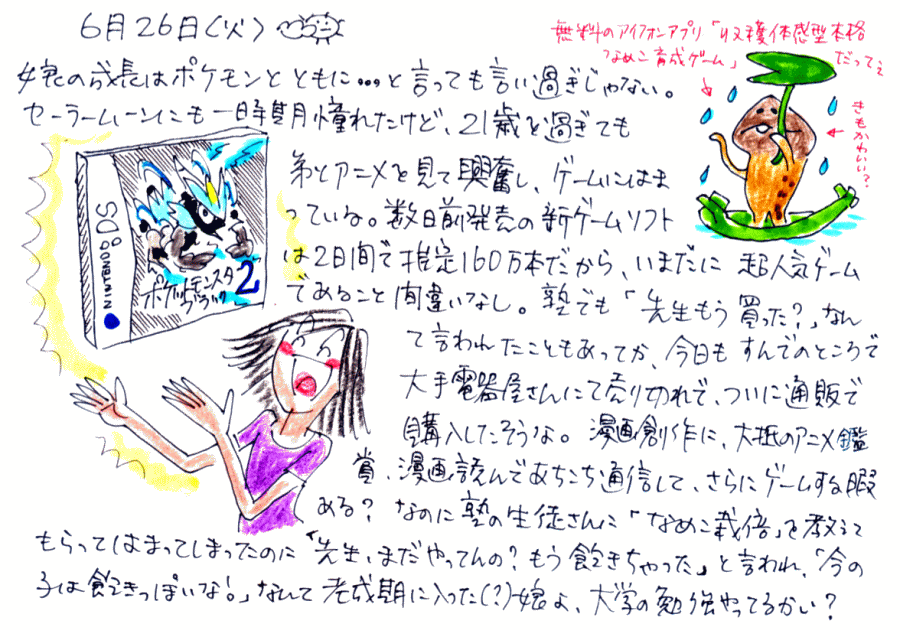 6月26日(火)
無料のアイフォンアプリ「収穫体感型本格
なめこ育成ゲーム」だってぇ
きもかわいい?
娘の成長はポケモンとともに…と言っても言い過ぎじゃない。
セーラームーンにも一時期憧れたけど、21歳を過ぎても
弟とアニメを見て興奮し、ゲームにはま
っている。数日前発売の新ゲームソフト
は2日間で推定160万本だから、いまだに超人気ゲーム
であること間違いなし。塾でも「先生もう買った?」なん
て言われたこともあってか、今日もすんでのところで
大手電器屋さんにて売り切れで、ついに通販で
購入したそうな。漫画創作に、大抵のアニメ鑑
賞、漫画読んであちこち通信して、さらにゲームする暇
ある?なのに塾の生徒さんに「なめこ栽倍」を教えて
もらってはまってしまったのに「先生、まだやってんの?もう飽きちゃった」と言われ、「今の
子は飽きっぽいな!」なんて老成期に入った(?)娘よ、大学の勉強やってるかい?
NINTENDO DS
ポケットモンスター
ブラック2